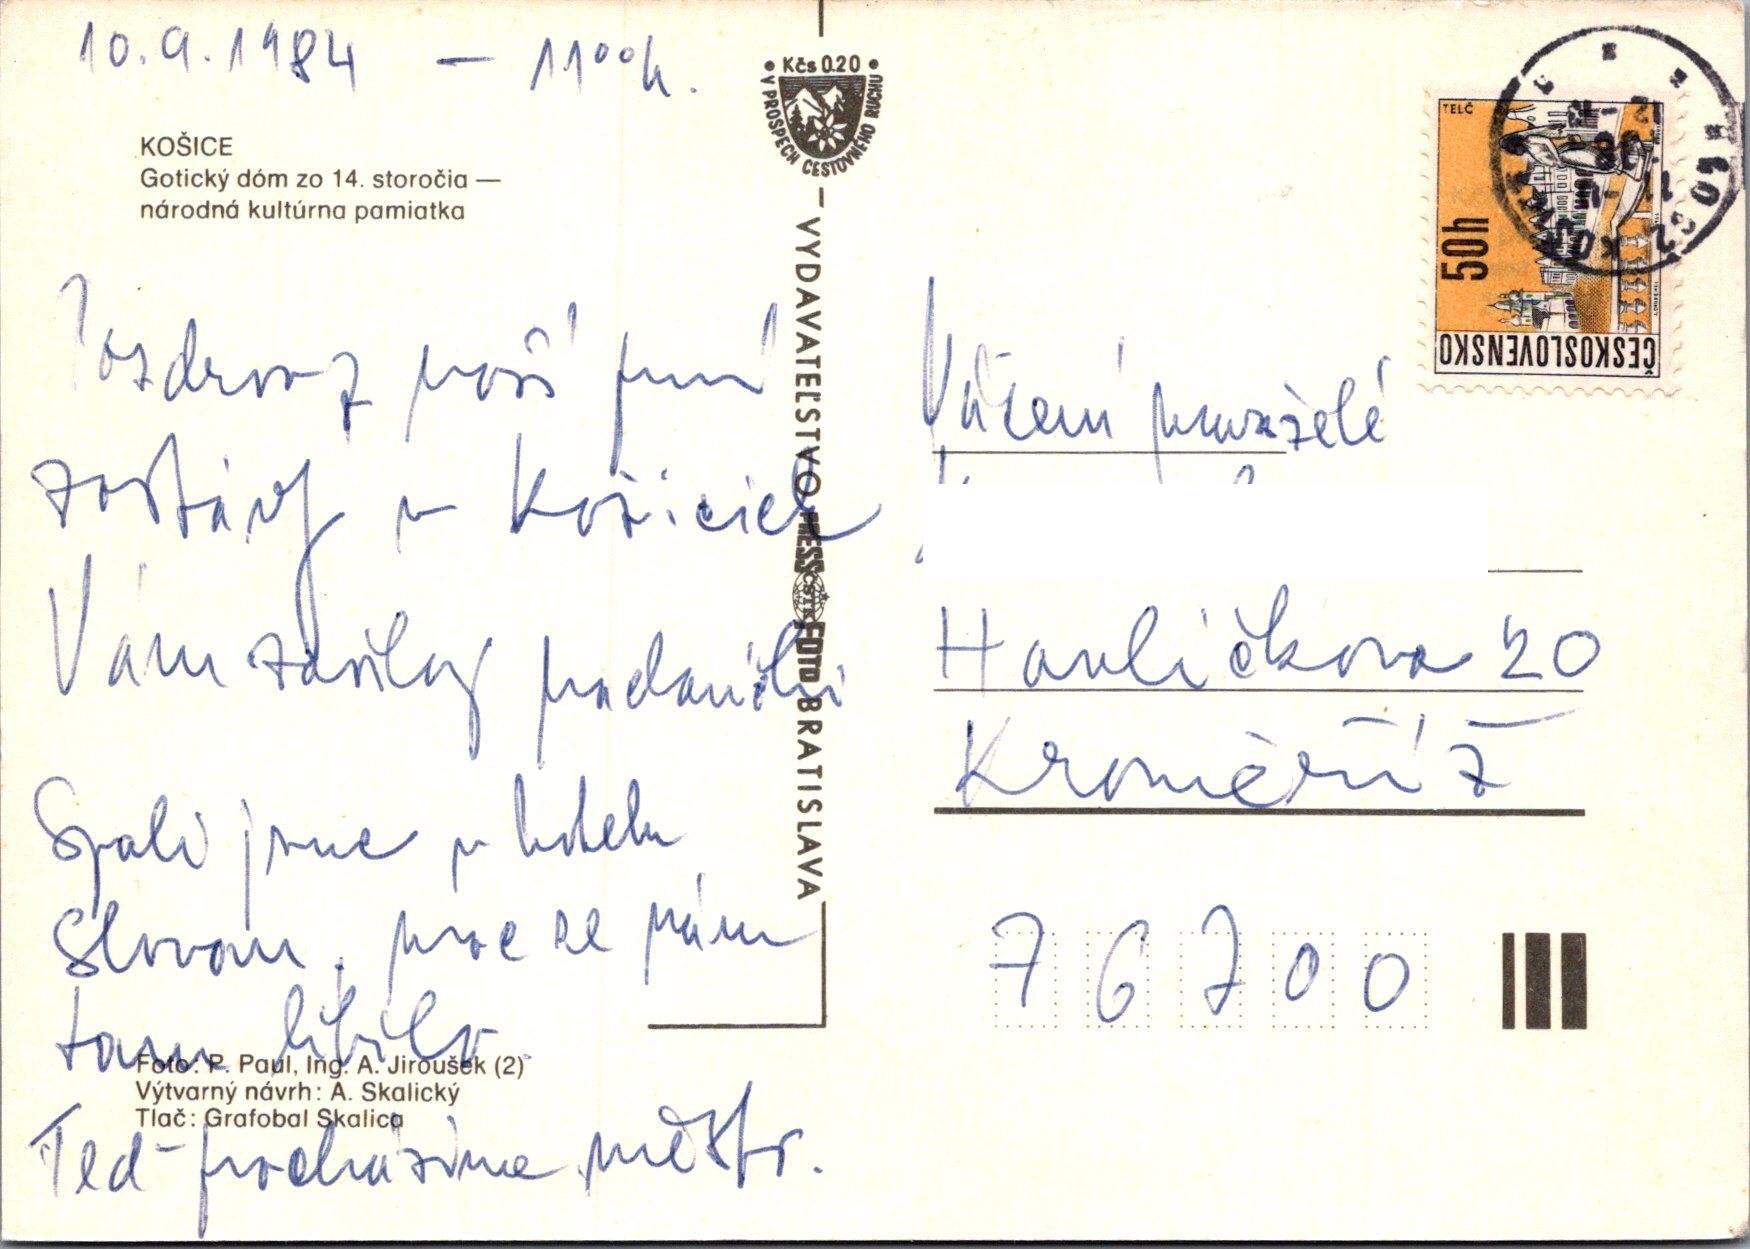 10.9.1984 — 11⁰⁰h.
KOŠICE
Gotický dóm zo 14. storočia —
národná kultúrna pamiatka
Pozdrav z naší první
zastávky v Košicích
Vám zasílají
Spali jsme v hotelu
Slovan, moc se nám
tam líbilo.
Teď procházíme město.
Foto: P. Paul, Ing. A. Jiroušek (2)
Výtvarný návrh: A. Skalický
Tlač: Grafobal Skalica
• Kčs 0.20 •
V PROSPECH CESTOVNÉHO RUCHU
VYDAVATEĽSTVO PRESSFOTO BRATISLAVA
ČSTK
TELČ
50h
ČESKOSLOVENSKO
Vážení manželé
Havlíčkova 20
Kroměříž
76700